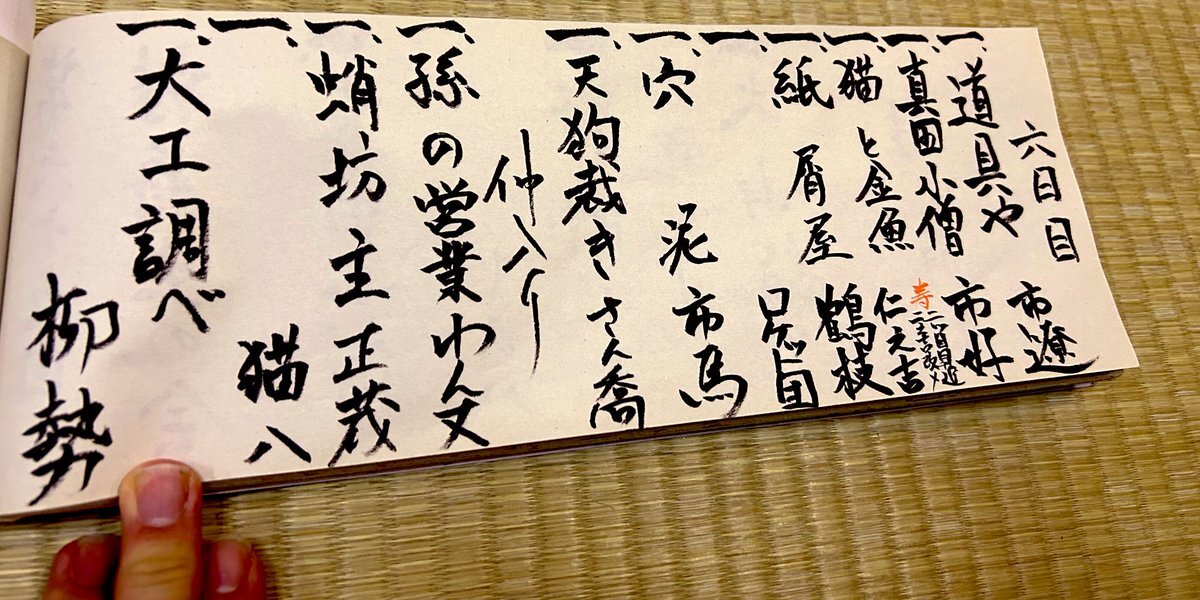 六日目
一、道具や 市遼
一、真田小僧 市好
寿
一、猫と金魚 仁之吉
一、紙屑屋 鶴枝
一、
一、穴泥 市馬
一、天狗裁き さん喬
仲入り
一、孫の営業 わん丈
一、蛸坊主 正蔵
一、 猫八
一、大工調べ
柳勢